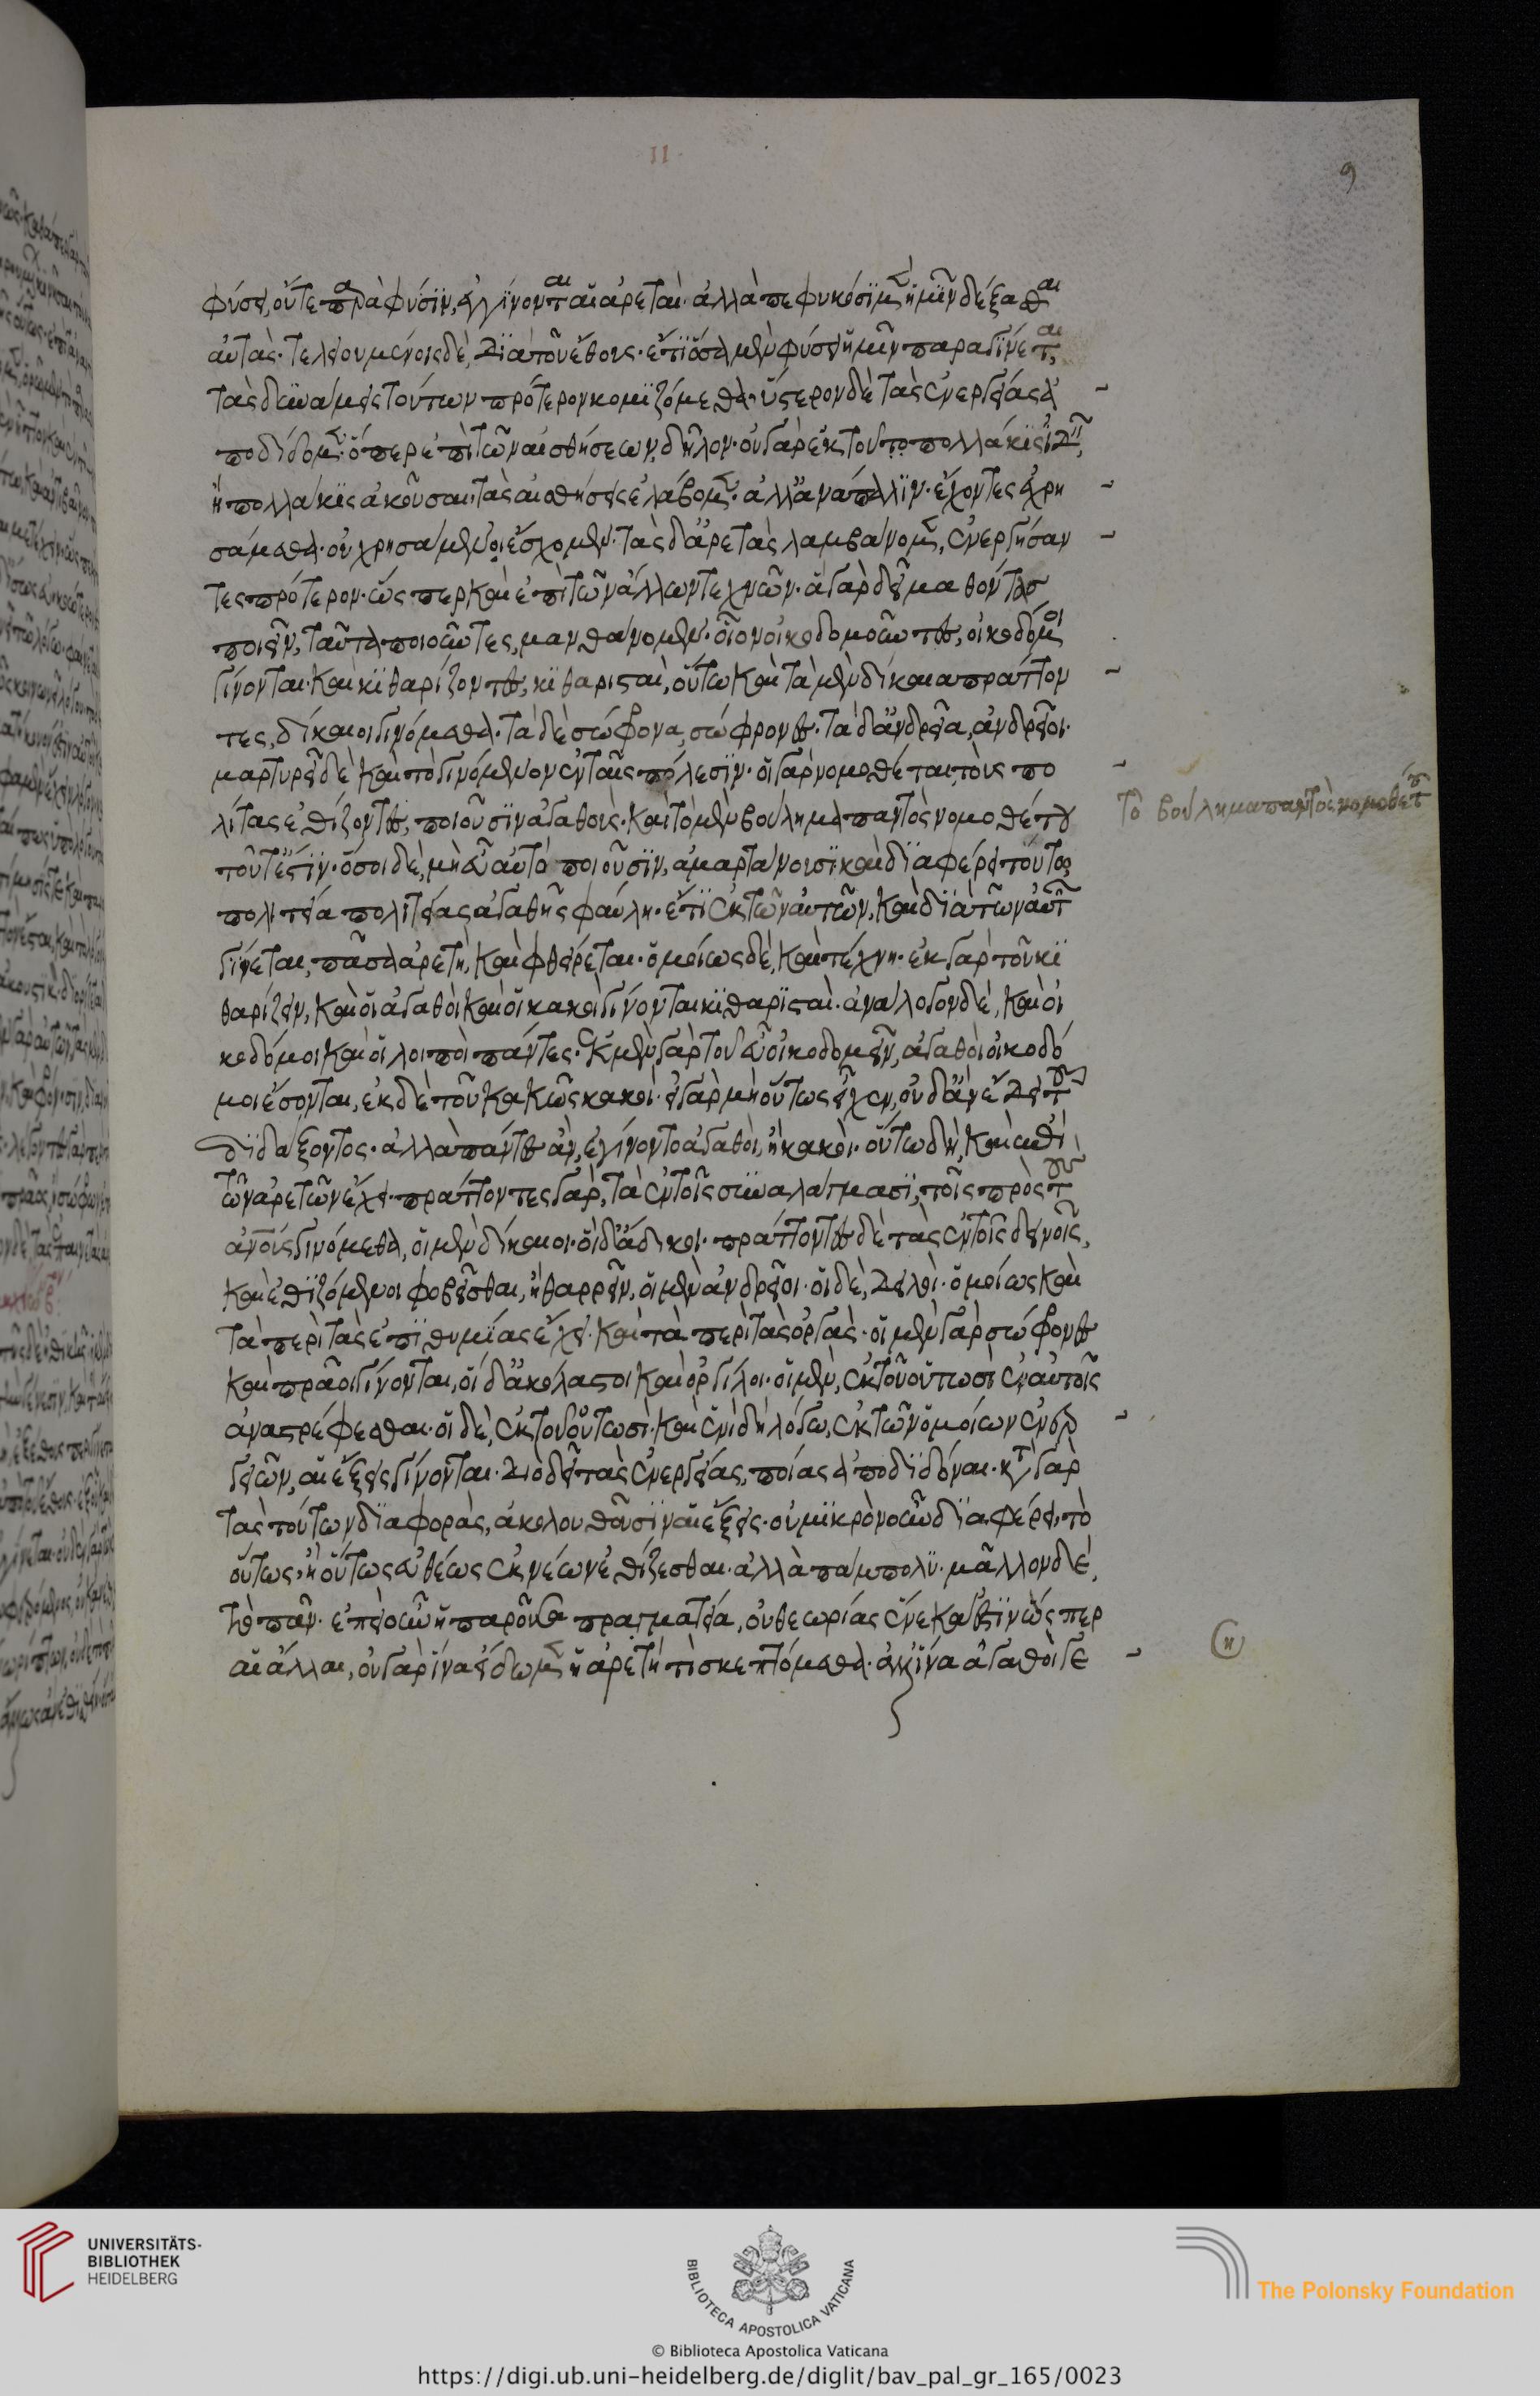 11
9
φύσει, οὔτε παρὰ φύσιν, ἐγγίνονται αἱ ἀρεταί· ἀλλὰ πεφυκόσι μὲν ἡμῖν δέξασθαι
αὐτάς· τελειουμένοις δὲ, διὰ τοῦ ἔθους· ἔτι ὅσα μὲν φύσει ἡμῖν παραγίνεται,
τὰς δυνάμεις τούτων πρότερον κομιζόμεθα· ὕστερον δὲ τὰς ἐνεργείας ἀ
ποδίδομεν· ὅπερ ἐπὶ τῶν αἰσθήσεων, δῆλον· οὐ γὰρ ἐκ τοῦ πολλάκις ἰδεῖν,
ἢ πολλάκις ἀκοῦσαι, τὰς αἰσθήσεις ἐλάβομεν· ἀλλ' ἀνάπαλιν· ἔχοντες ἐχρη
σάμεθα· οὐ χρησάμενοι ἔσχομεν· τὰς δ' ἀρετὰς λαμβάνομεν, ἐνεργήσαν
τες πρότερον· ὥσπερ καὶ ἐπὶ τῶν ἄλλων τεχνῶν· ἃ γὰρ δεῖ μαθόντας
ποιεῖν, ταῦτα ποιοῦντες, μανθάνομεν· οἷον οἰκοδομοῦντες, οἰκοδόμοι
γίνονται· καὶ κιθαρίζοντες, κιθαρισταί, οὕτω καὶ τὰ μὲν δίκαια πράττον
τες, δίκαιοι γινόμεθα· τὰ δὲ σώφρονα, σώφρονες· τὰ δ' ἀνδρεῖα, ἀνδρεῖοι·
μαρτυρεῖ δὲ καὶ τὸ γινόμενον ἐν ταῖς πόλεσιν· οἱ γὰρ νομοθέται τοὺς πο
λίτας ἐθίζοντες, ποιοῦσιν ἀγαθούς· καὶ τὸ μὲν βούλημα παντὸς νομοθέτου
τοῦτ' ἐστίν· ὅσοι δὲ, μὴ εὖ αὐτὸ ποιοῦσιν, ἁμαρτάνουσι καὶ διαφέρει τούτῳ
πολιτεία πολιτείας ἀγαθῆς φαύλη· ἔτι ἐκ τῶν αὐτῶν, καὶ διὰ τῶν αὐτῶν
γίνεται, πᾶσα ἀρετὴ, καὶ φθείρεται· ὁμοίως δὲ, καὶ τέχνη· ἐκ γὰρ τοῦ κι
θαρίζειν, καὶ οἱ ἀγαθοὶ καὶ οἱ κακοὶ γίνονται κιθαρισταί· ἀνάλογον δὲ, καὶ οἰ
κοδόμοι καὶ οἱ λοιποὶ πάντες· ἐκ μὲν γὰρ τοῦ εὖ οἰκοδομεῖν, ἀγαθοὶ οἰκοδό
μοι ἔσονται, ἐκ δὲ τοῦ κακῶς κακοί· εἰ γὰρ μὴ οὕτως εἶχεν, οὐδὲν ἂν ἔδει τοῦ
διδάξοντος· ἀλλὰ πάντες ἂν, ἐγίνοντο ἀγαθοὶ, ἢ κακοί· οὕτω δὴ, καὶ ἐπὶ
τῶν ἀρετῶν ἔχει· πράττοντες γὰρ, τὰ ἐν τοῖς συναλλάγμασι, τοῖς πρὸς τοὺς
ἀνους γινόμεθα, οἱ μὲν δίκαιοι· οἱ δ' ἄδικοι· πράττοντες δὲ τὰς ἐν τοῖς δεινοῖς,
καὶ ἐθιζόμενοι φοβεῖσθαι, ἢ θαρρεῖν, οἱ μὲν ἀνδρεῖοι· οἱ δὲ, δειλοί· ὁμοίως καὶ
τὰ περὶ τὰς ἐπιθυμίας ἔχει· καὶ τὰ περὶ τὰς ὀργάς· οἱ μὲν γὰρ σώφρονες
καὶ πρᾶοι γίνονται, οἱ δ' ἀκόλαστοι καὶ ὀργίλοι· οἱ μὲν, ἐκ τοῦ οὑτωσὶ ἐν αὐτοῖς
ἀναστρέφεσθαι· οἱ δὲ, ἐκ τοῦ οὑτωσί· καὶ ἑνὶ δὴ λόγῳ, ἐκ τῶν ὁμοίων ἐνερ
γειῶν, αἱ ἕξεις γίνονται· διὸ δεῖ τὰς ἐνεργείας, ποίας ἀποδιδόναι· κατὰ γὰρ
τὰς τούτων διαφορὰς, ἀκολουθοῦσιν αἱ ἕξεις· οὐ μικρὸν οὖν διαφέρει, τὸ
οὕτως· ἢ οὕτως εὐθέως ἐκ νέων ἐθίζεσθαι· ἀλλὰ πάμπολυ· μᾶλλον δὲ,
τὸ πᾶν· ἐπεὶ οὖν ἡ παροῦσα πραγματεία, οὐ θεωρίας ἕνεκά ἐστιν ὥσπερ
αἱ ἄλλαι, οὐ γὰρ ἵνα εἰδῶμεν ἡ ἀρετὴ τί σκεπτόμεθα· ἀλλ' ἵνα ἀγαθοὶ γε
τὸ βούλημα παντὸς νομοθέτου
UNIVERSITÄTS-
BIBLIOTHEK
HEIDELBERG
BIBLIOTECA APOSTOLICA VATICANA
The Polonsky Foundation
© Biblioteca Apostolica Vaticana
https://digi.ub.uni-heidelberg.de/diglit/bav_pal_gr_165/0023